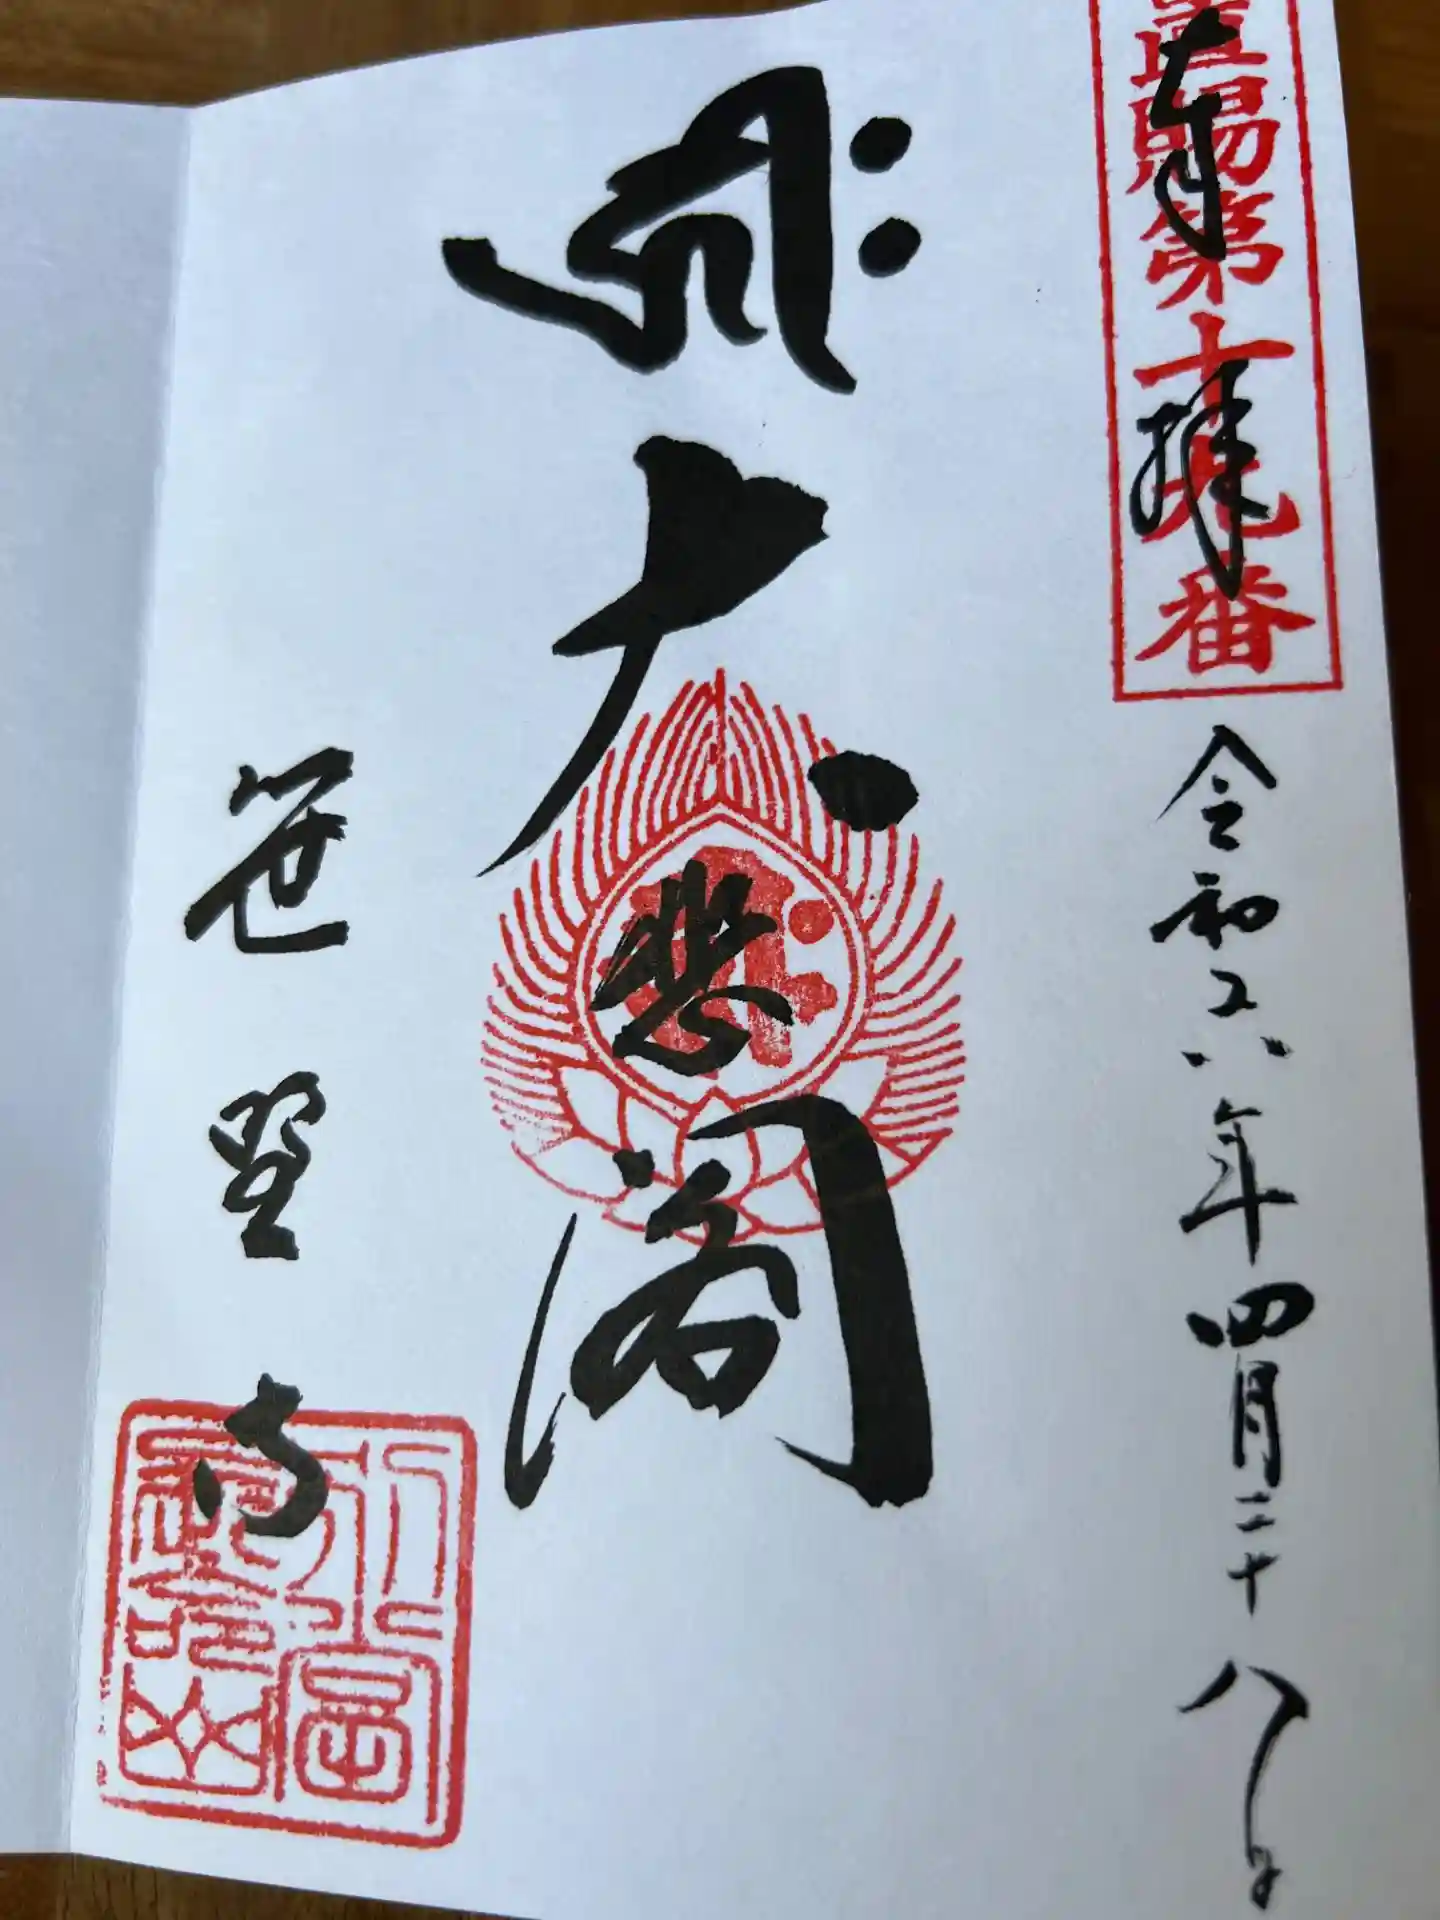 置賜第十九番
奉拝
令和六年四月二十八日
大悲閣
笹野寺